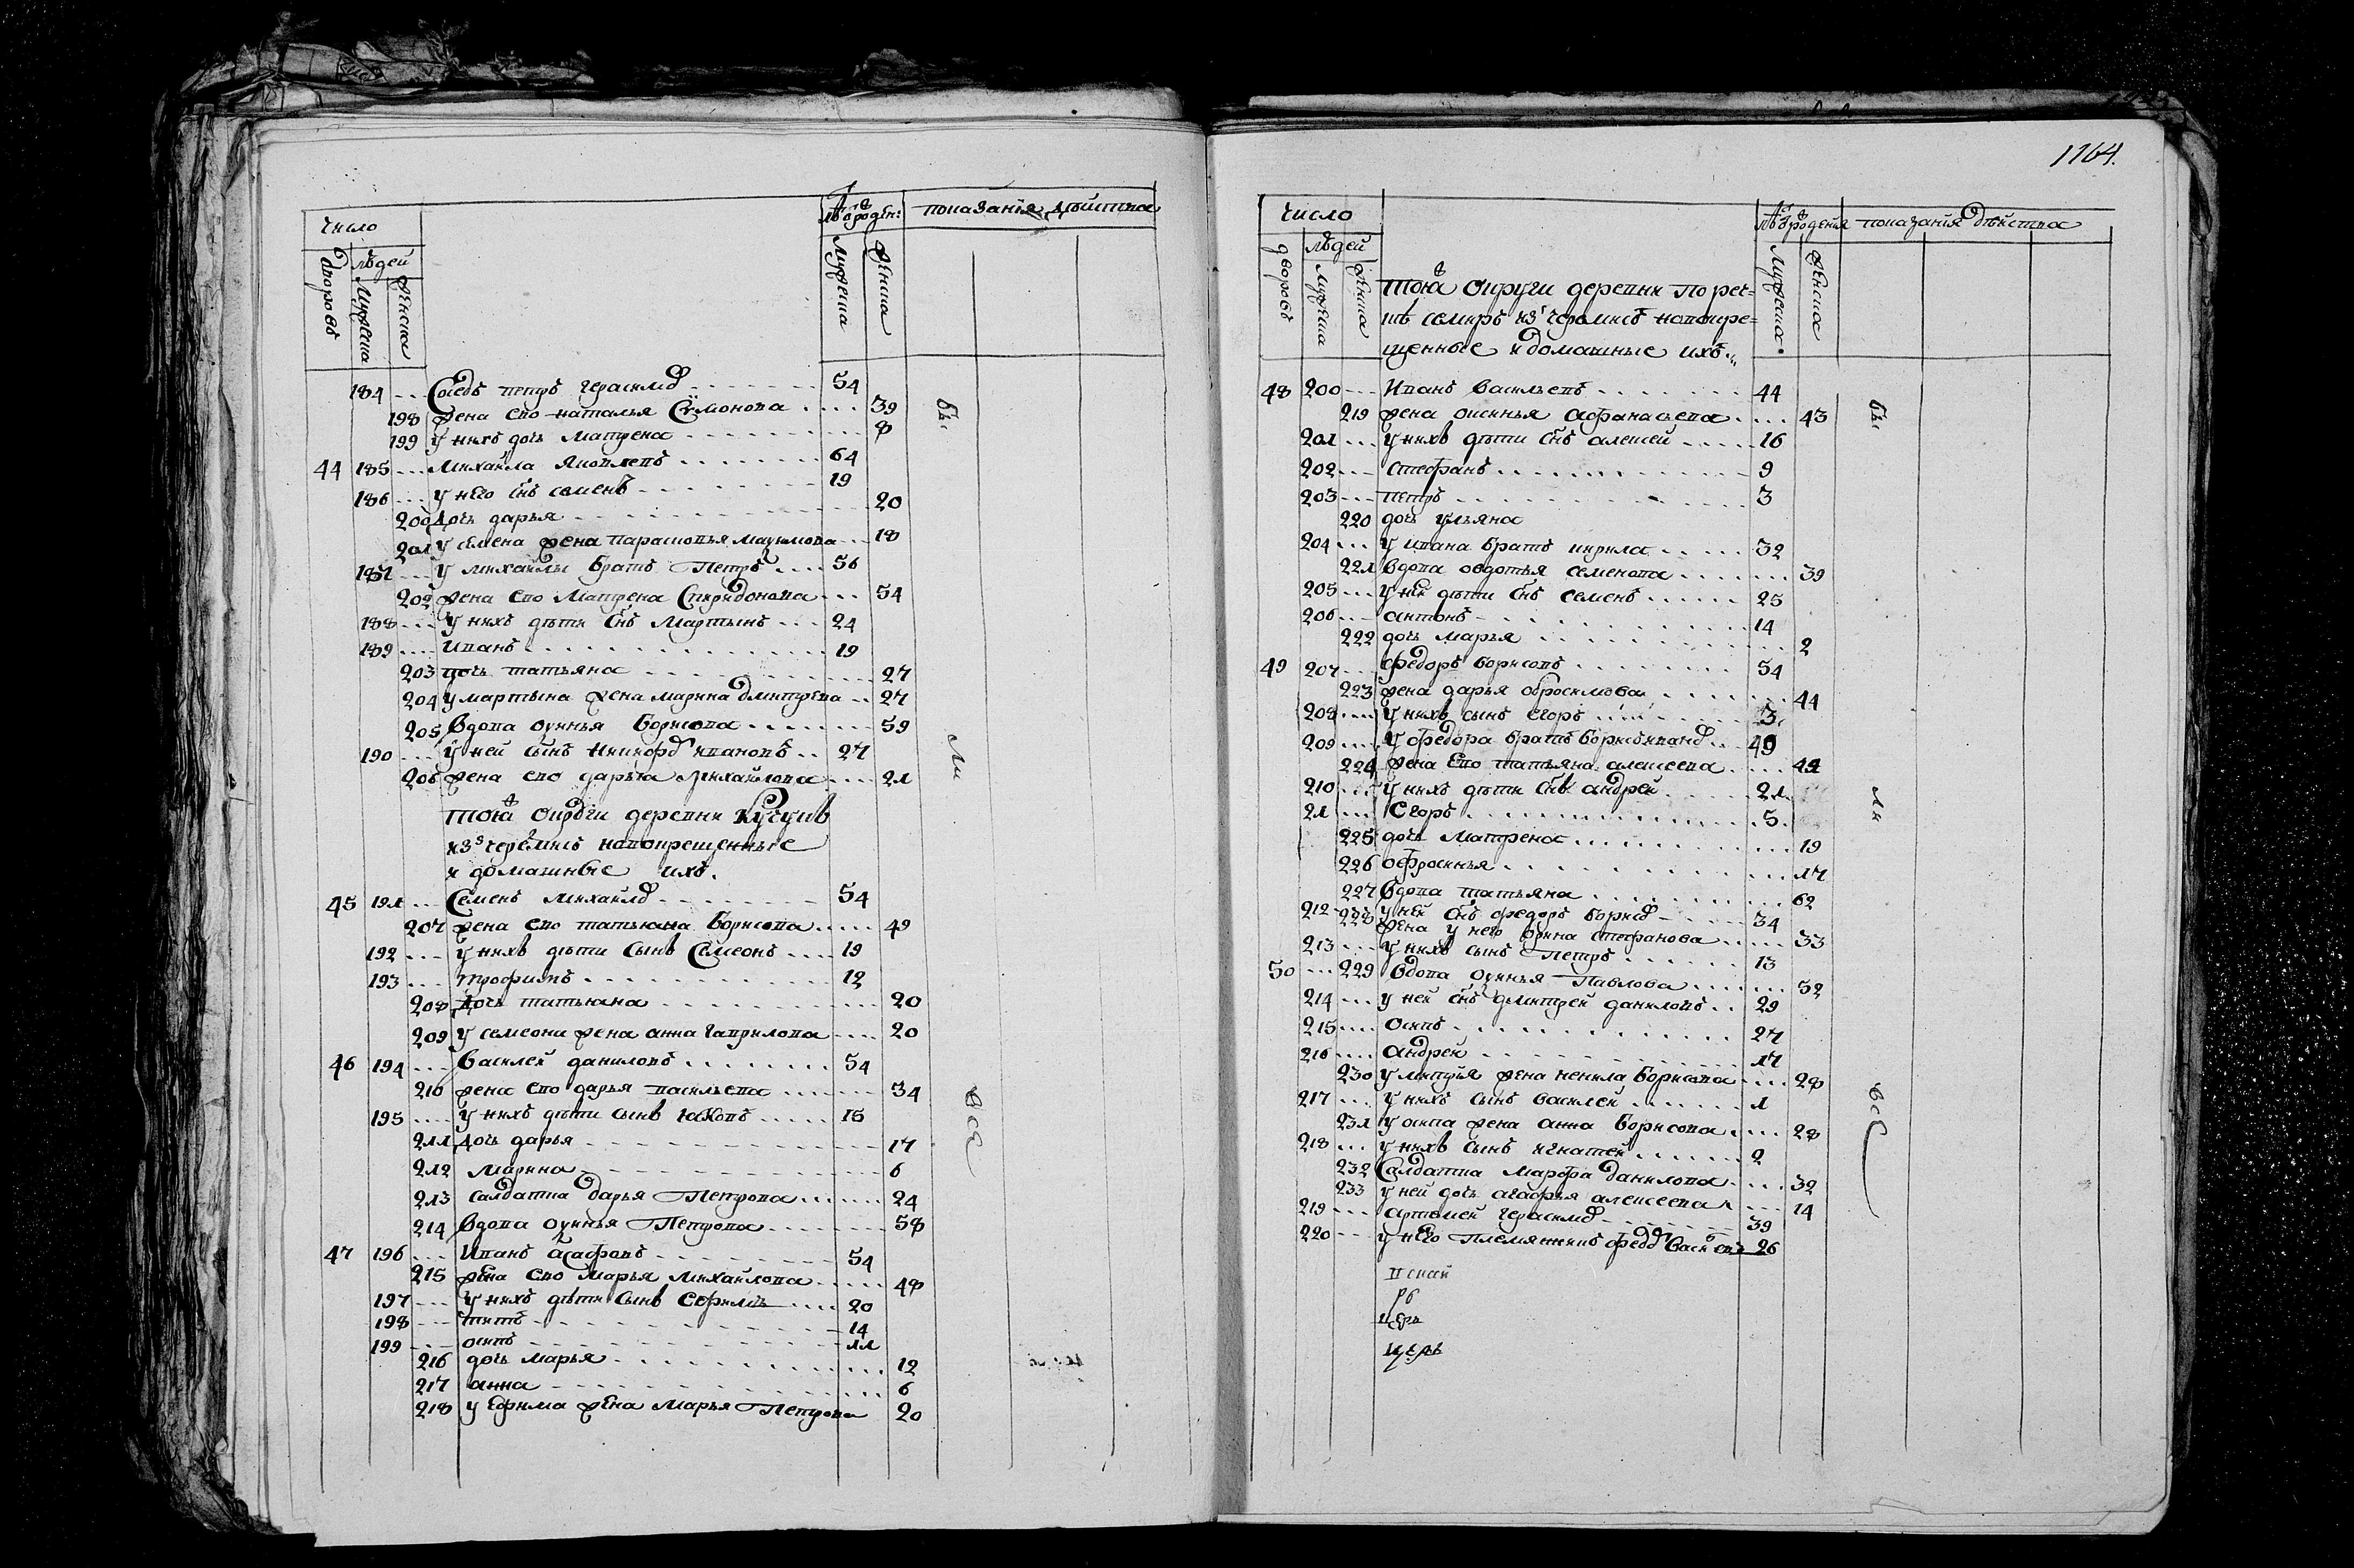 число
людей
дворовъ
мужеска
женска
лѣта от рожден:
мужеска
женска
показания дѣйства
184 ... Сосѣдъ петръ герасимо 54
198 жена ево наталья Сѵмонова 39
199 у нихъ дочь матрена 8
44 185 ... михайла яковлевъ 64
186 ... у него снъ семенъ 19
200 дочь дарья 20
201 у семена жена парасковья маѯимова 18
187 ... у михайлы братъ Петръ 56
202 жена ево матрена Спиридонова 54
188 ... у нихъ дѣти снъ мартынъ 24
189 ... иванъ 19
203 дочь татьяна 27
204 у мартына жена марина дмитрева 27
205 вдова оѯинья борисова 59
190 ... у ней сынъ никифоръ ивановъ 27
206 жена ево дарья михайлова 21
тоя округи деревни
изъ черемисъ новокрещенные
и домашные ихъ.
45 191 ... Семенъ михайло 54
207 жена ево татьяна борисова 49
192 ... у нихъ дѣти сынъ Симеонъ 19
193 ... трофимъ 12
208 дочь татьяна 20
209 у семеона жена анна гаврилова 20
46 194 ... василей даниловъ 54
210 жена ево дарья васильева 34
195 ... у нихъ дѣти сынъ яковъ 15
211 дочь дарья 17
212 марина 6
213 салдатка дарья Петрова 24
214 вдова оѯинья Петрова 58
47 196 ... Иванъ агафовъ 54
215 жена ево марья михайлова 48
197 ... у нихъ дѣти сынъ ефимъ 20
198 ... титъ 14
199 ... осипъ 11
216 дочь марья 12
217 анна 6
218 у ефима жена марья Петрова 20
бы
ли
всѣ
1164.
число
людей
дворовъ
мужеска
женска
лѣта от рождения
мужеска
женска
показания дѣйства
тоя округи деревни Поре
изъ черемисъ новокре=
щенные и домашные ихъ.
48 200 ... Иванъ васильевъ 44
219 жена оксинья афанасьева 43
201 ... у нихъ дѣти снъ алексей 16
202 ... стефанъ 9
203 ... петръ 3
220 дочь ульяна
204 ... у ивана братъ кирила 32
221 вдова овдотья семенова 39
205 ... у ней дѣти снъ семенъ 25
206 ... антонъ 14
222 дочь марья 2
49 207 ... федоръ борисовъ 54
223 жена дарья обросимова 44
208 ... у нихъ сынъ егоръ 3
209 ... у федора братъ борисъ ивано 49
224 жена ево татьяна алексеева 42
210 ... у нихъ дѣти снъ андрей 21
21 ... Егоръ 5
225 дочь матрена 19
226 офросинья 17
227 вдова татьяна 62
212 ... у ней снъ федоръ борисо 34
228 жена у нево орина стефанова 33
213 ... у нихъ сынъ Петръ 13
50 ... 229 вдова оѯинья Павлова 52
214 ... у ней снъ дмитрей даниловъ 29
215 ... осипъ 27
216 ... андрей 17
230 у митрия жена ненила борисова 28
217 ... у нихъ сынъ василей 1
231 у осипа жена анна борисова 28
218 ... у нихъ сынъ игнатей 2
232 Салдатка марфа данилова 32
233 у ней дочь агафья алексеева 14
219 ... артемей герасимо 39
220 ... у него племянникъ федо 26
бы
ли
всѣ